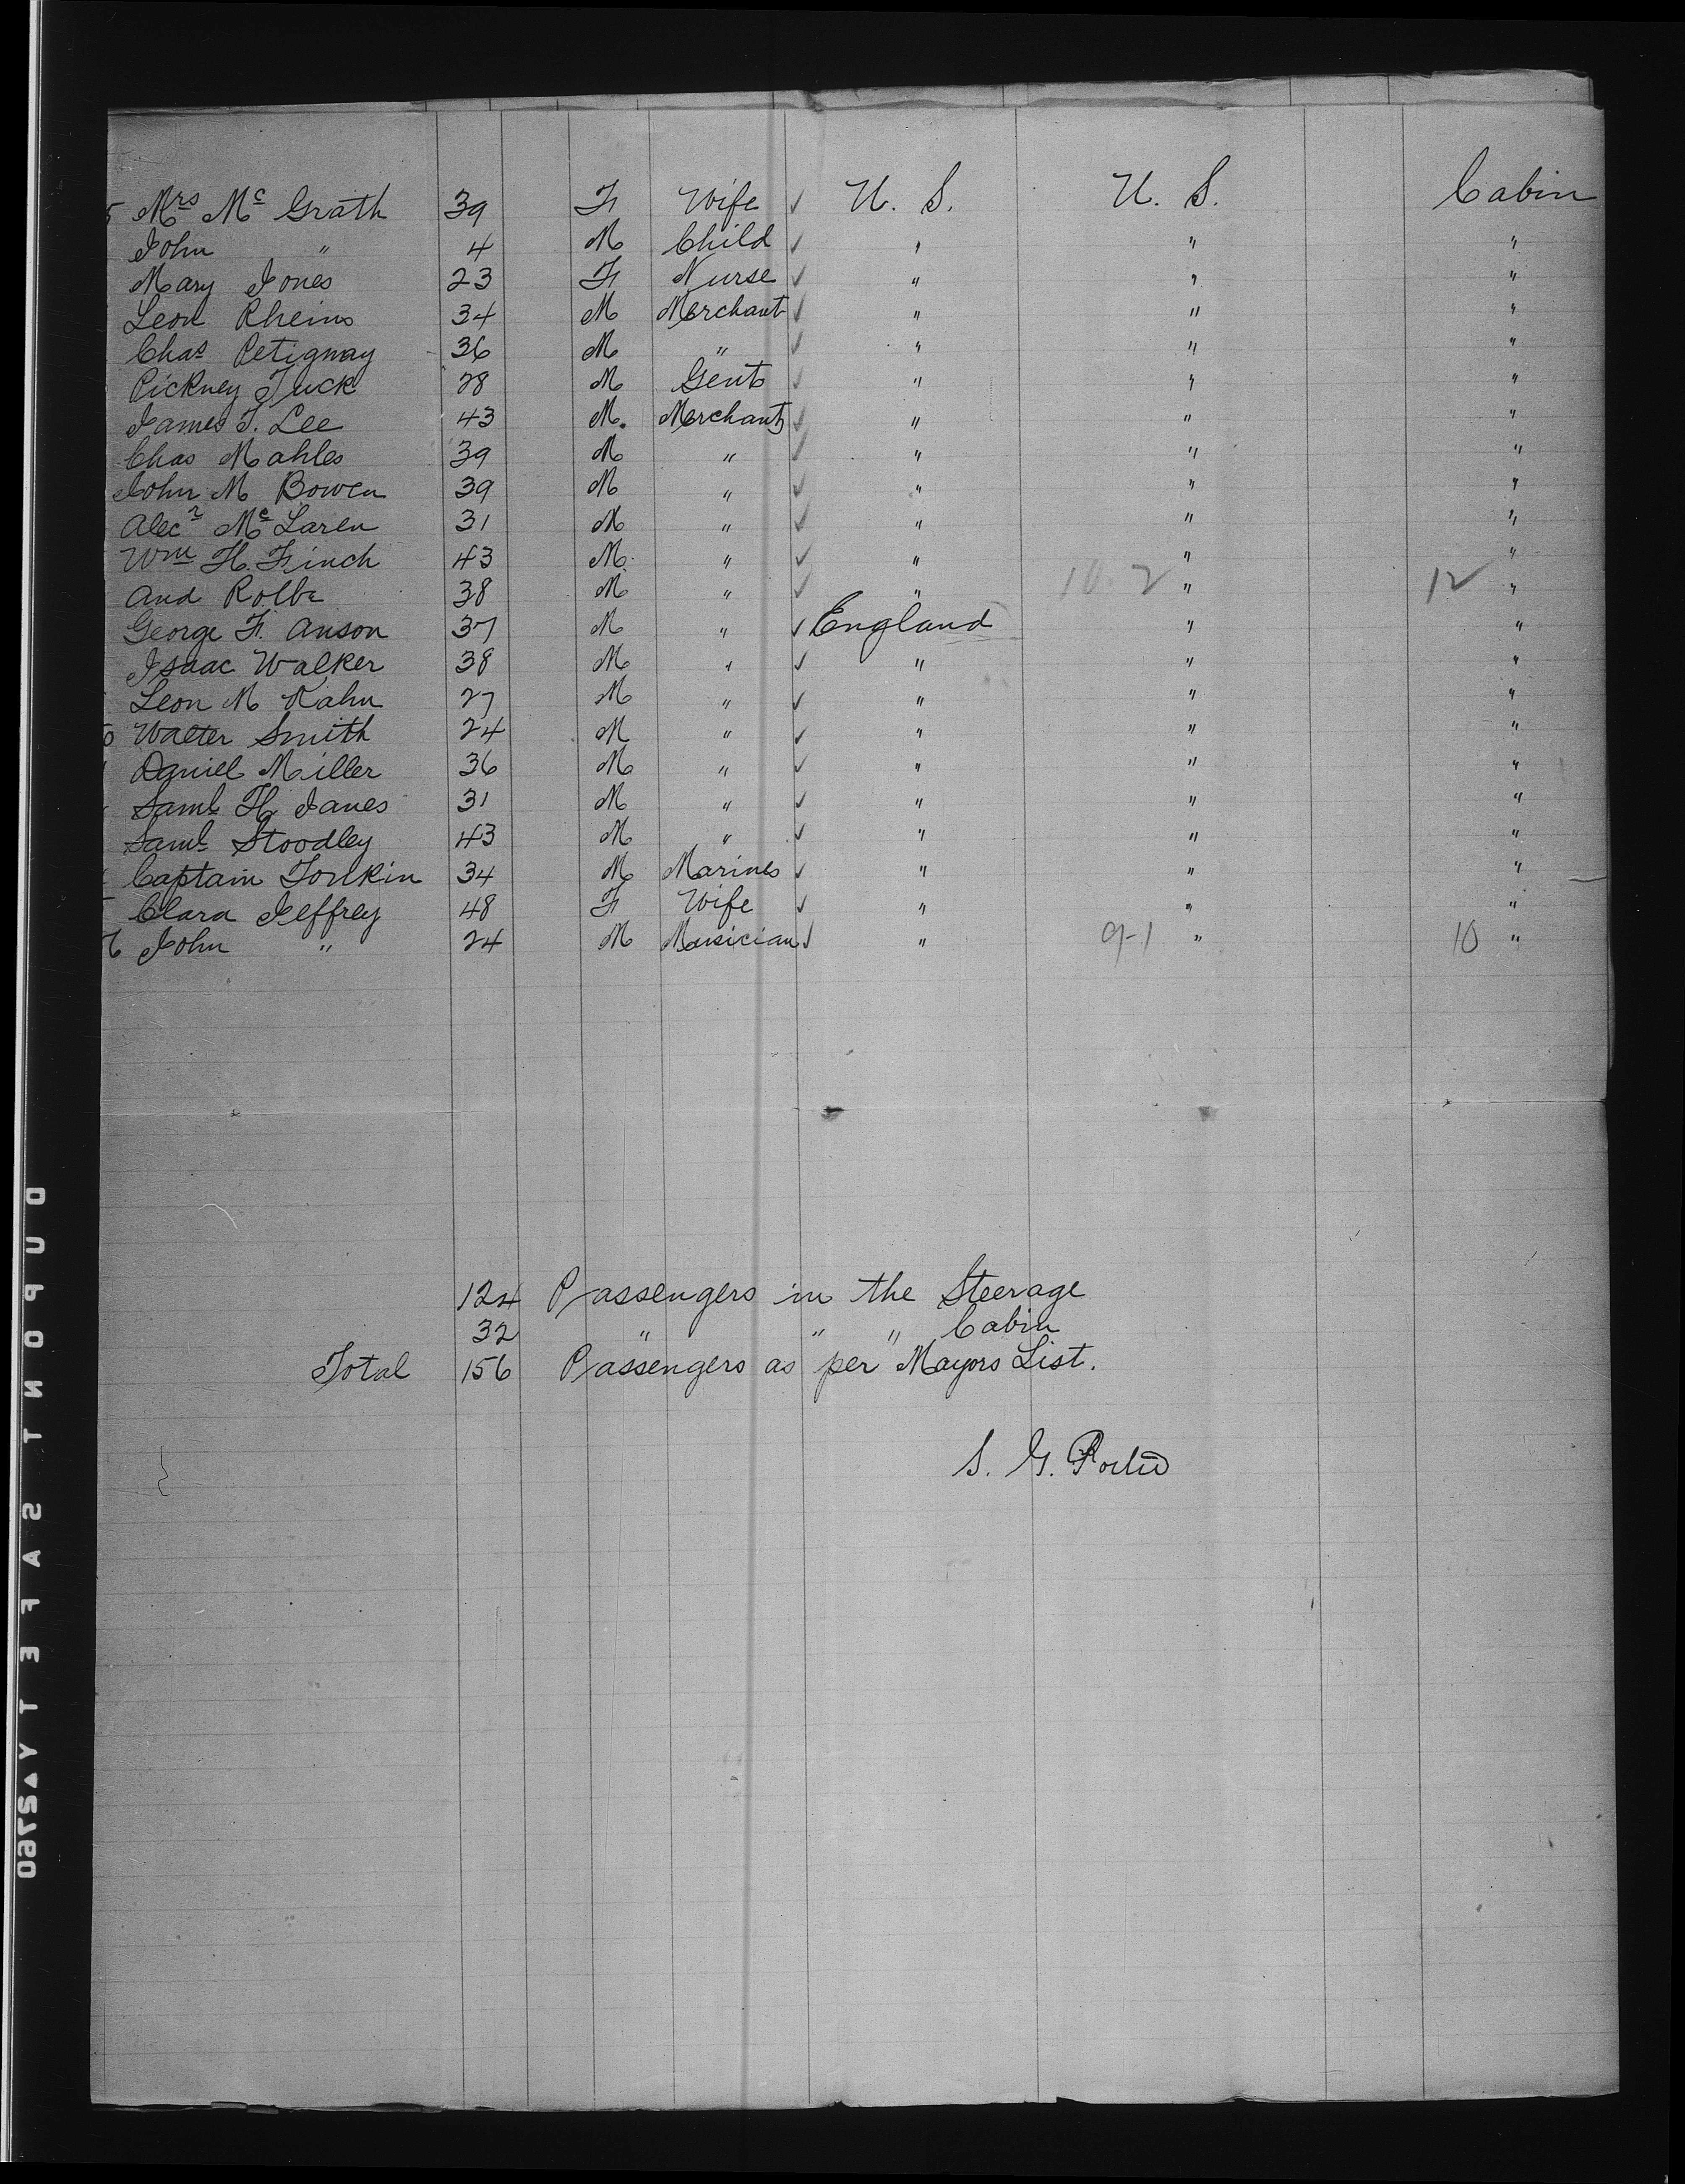 5 Mrs Mc Grath 39 F Wife ✓ U. S. U. S. Cabin
John " 4 M Child ✓ " " "
Mary Jones 23 F Nurse ✓ " " "
Leon Rheims 34 M Merchant ✓ " " "
Chas Petignay 36 M " ✓ " " "
Pickney Tuck 28 M Gent ✓ " " "
James T. Lee 43 M. Merchant ✓ " " "
Chas Mahles 39 M " ✓ " " "
John M Bowen 39 M " ✓ " " "
Alecr Mc Laren 31 M " ✓ " " "
Wm H. Finch 43 M. " ✓ " " "
And Rolbe 38 M " ✓ " 10-2 " 12 "
George F. Anson 37 M " ✓ England " "
Isaac Walker 38 M " ✓ " " "
Leon M Kahn 27 M " ✓ " " "
0 Walter Smith 24 M " ✓ " " "
Daniel Miller 36 M " ✓ " " "
Saml H Janes 31 M " ✓ " " "
Saml Stoodley 43 M " ✓ " " "
Captain Tonkin 34 M Marines ✓ " " "
Clara Jeffrey 48 F Wife ✓ " " "
6 John " 24 M Musician ✓ " 9-1 " 10 "
124 Passengers in the Steerage
32 " " " Cabin
Total 156 Passengers as per Mayors List.
S. G. Porter
DUPONT SAFETY